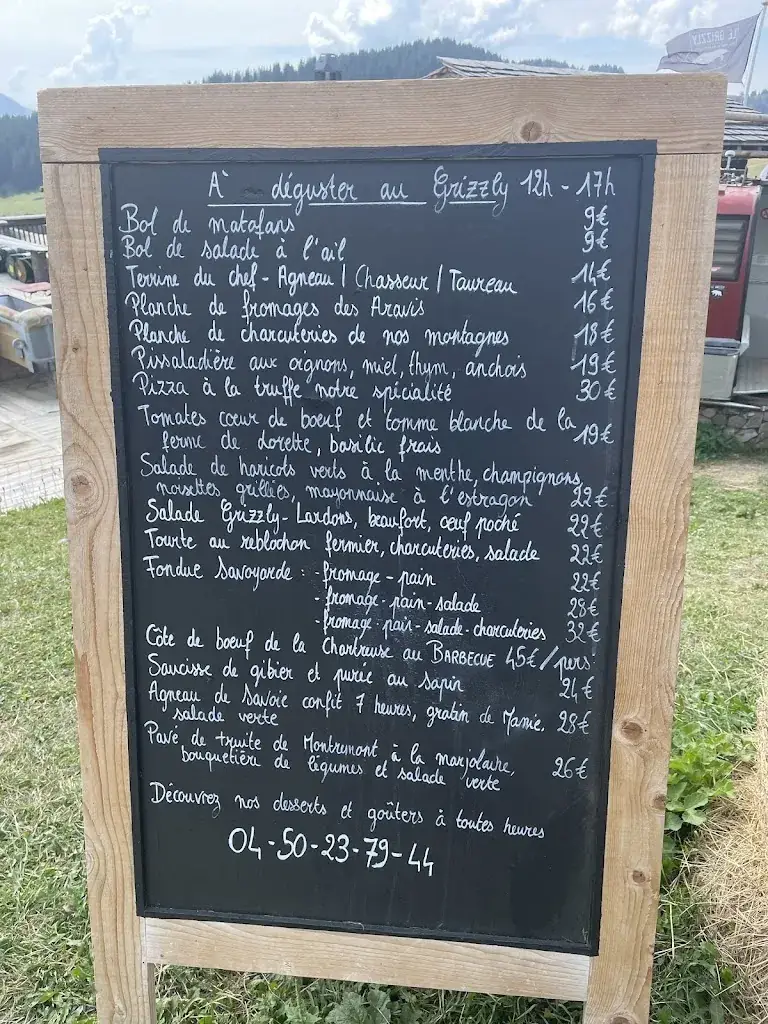 LE GRIZZLY
À déguster au Grizzly 12h - 17h
Bol de matafans 9€
Bol de salade à l'ail 9€
Terrine du chef - Agneau | Chasseur | Taureau 14€
Planche de fromages des Aravis 16€
Planche de charcuteries de nos montagnes 18€
Pissaladière aux oignons, miel, thym, anchois 19€
Pizza à la truffe notre spécialité 30€
Tomates cœur de bœuf et tomme blanche de la
ferme de dorette, basilic frais 19€
Salade de haricots verts à la menthe, champignons,
noisettes grillées, mayonnaise à l'estragon 22€
Salade Grizzly - Lardons, beaufort, œuf poché 22€
Tourte au reblochon fermier, charcuteries, salade 22€
Fondue Savoyarde : fromage - pain 22€
- fromage - pain - salade 28€
- fromage - pain - salade - charcuteries 32€
Côte de bœuf de la Chartreuse au BARBECUE 45€/pers
Saucisse de gibier et purée au sapin 24€
Agneau de Savoie confit 7 heures, gratin de Mamie, 28€
salade verte
Pavé de truite de Montremont à la marjolaine,
bouquetière de légumes et salade verte 26€
Découvrez nos desserts et goûters à toutes heures
04-50-23-79-44